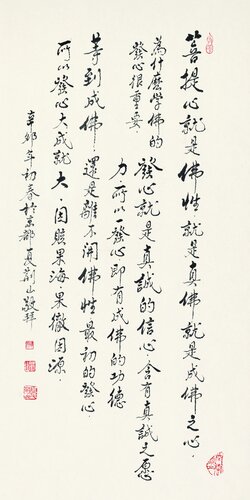 菩提心就是佛性就是真佛就是成佛之心.
為什麼學佛的
發心很重要.
發心就是真誠的信心.含有真誠之愿
力所以一發心即有成佛的功德
等到成佛.還是離不開佛性最初的發心.
所以發心大成就大.因賅果海果徹因源.
辛卯年初春於京都 夏荆山敬拜